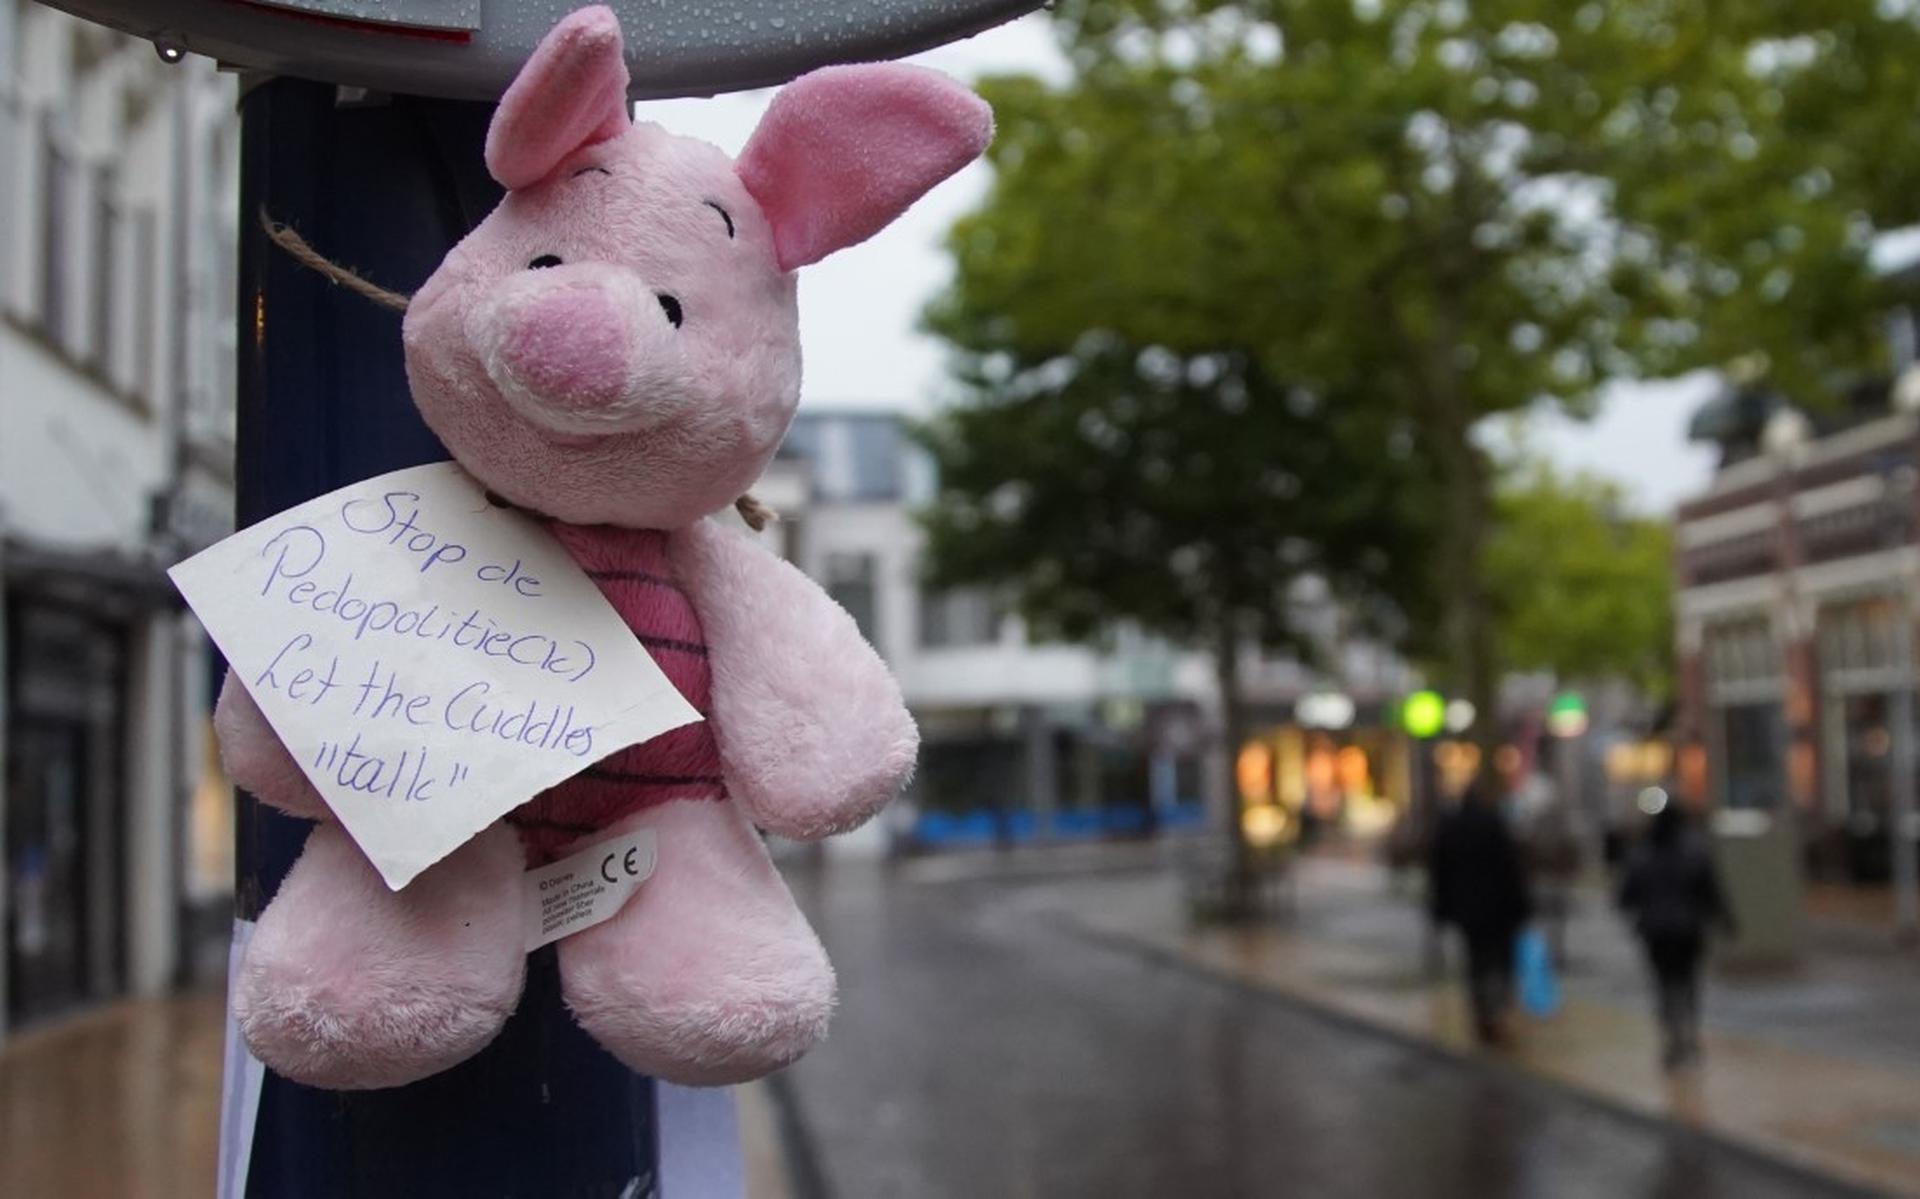 Stop de
Pedopolitie(k)
Let the Cuddles
"talk"
CE
© Disney
Made in China
All new materials
polyester fiber
plastic pellets